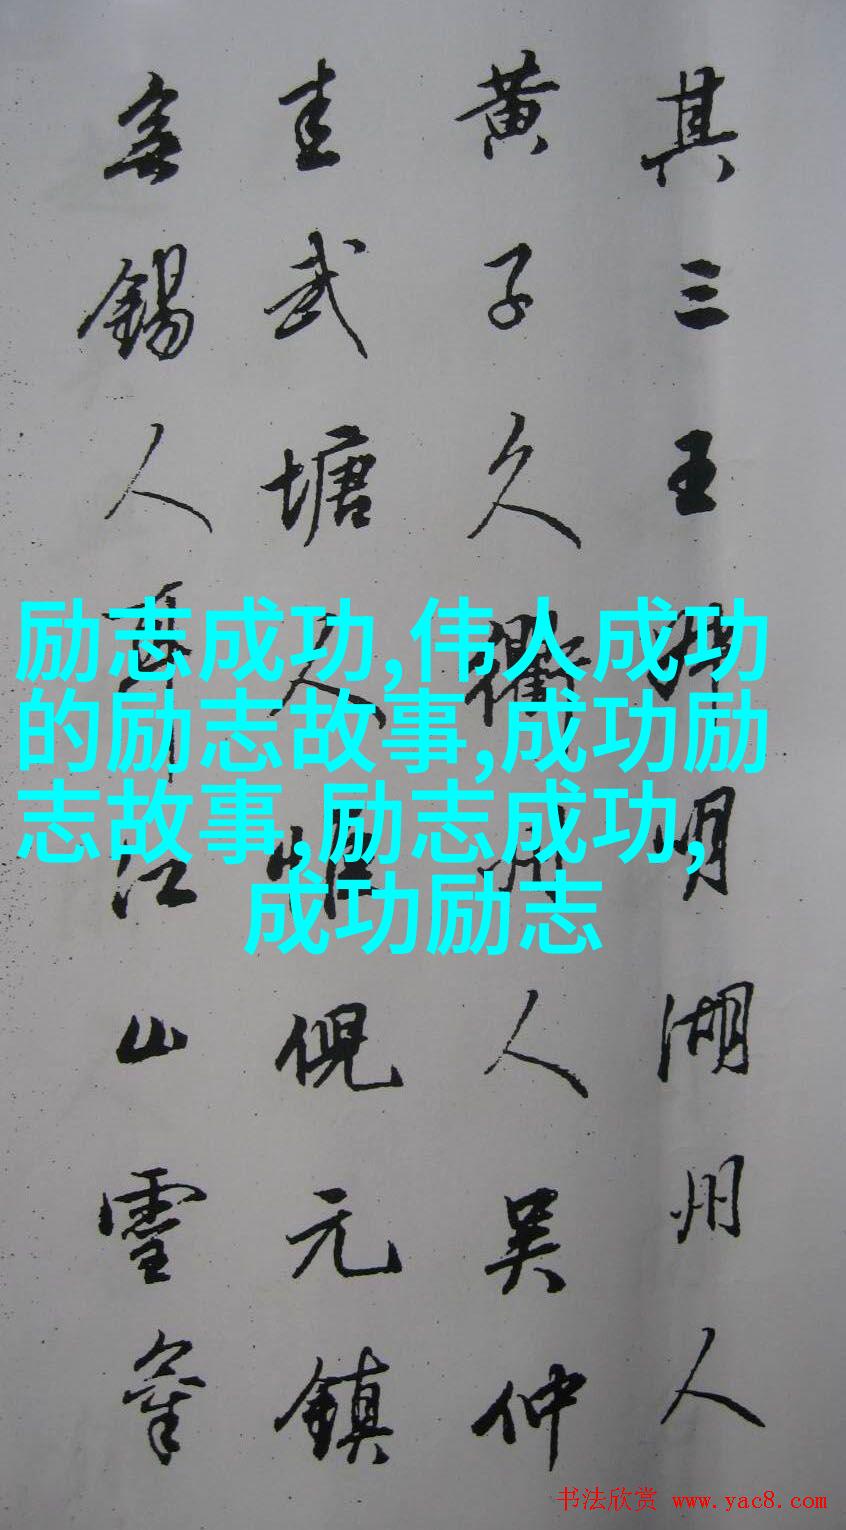 其三王明湖州人
黄子久衢州人吴仲
圭武塘人惟倪元鎮
無錫人耳江山靈氣
励志成功,伟人成功
的励志故事,成功励
志故事,励志成功,
成功励志
书法欣赏 www.yac8.com